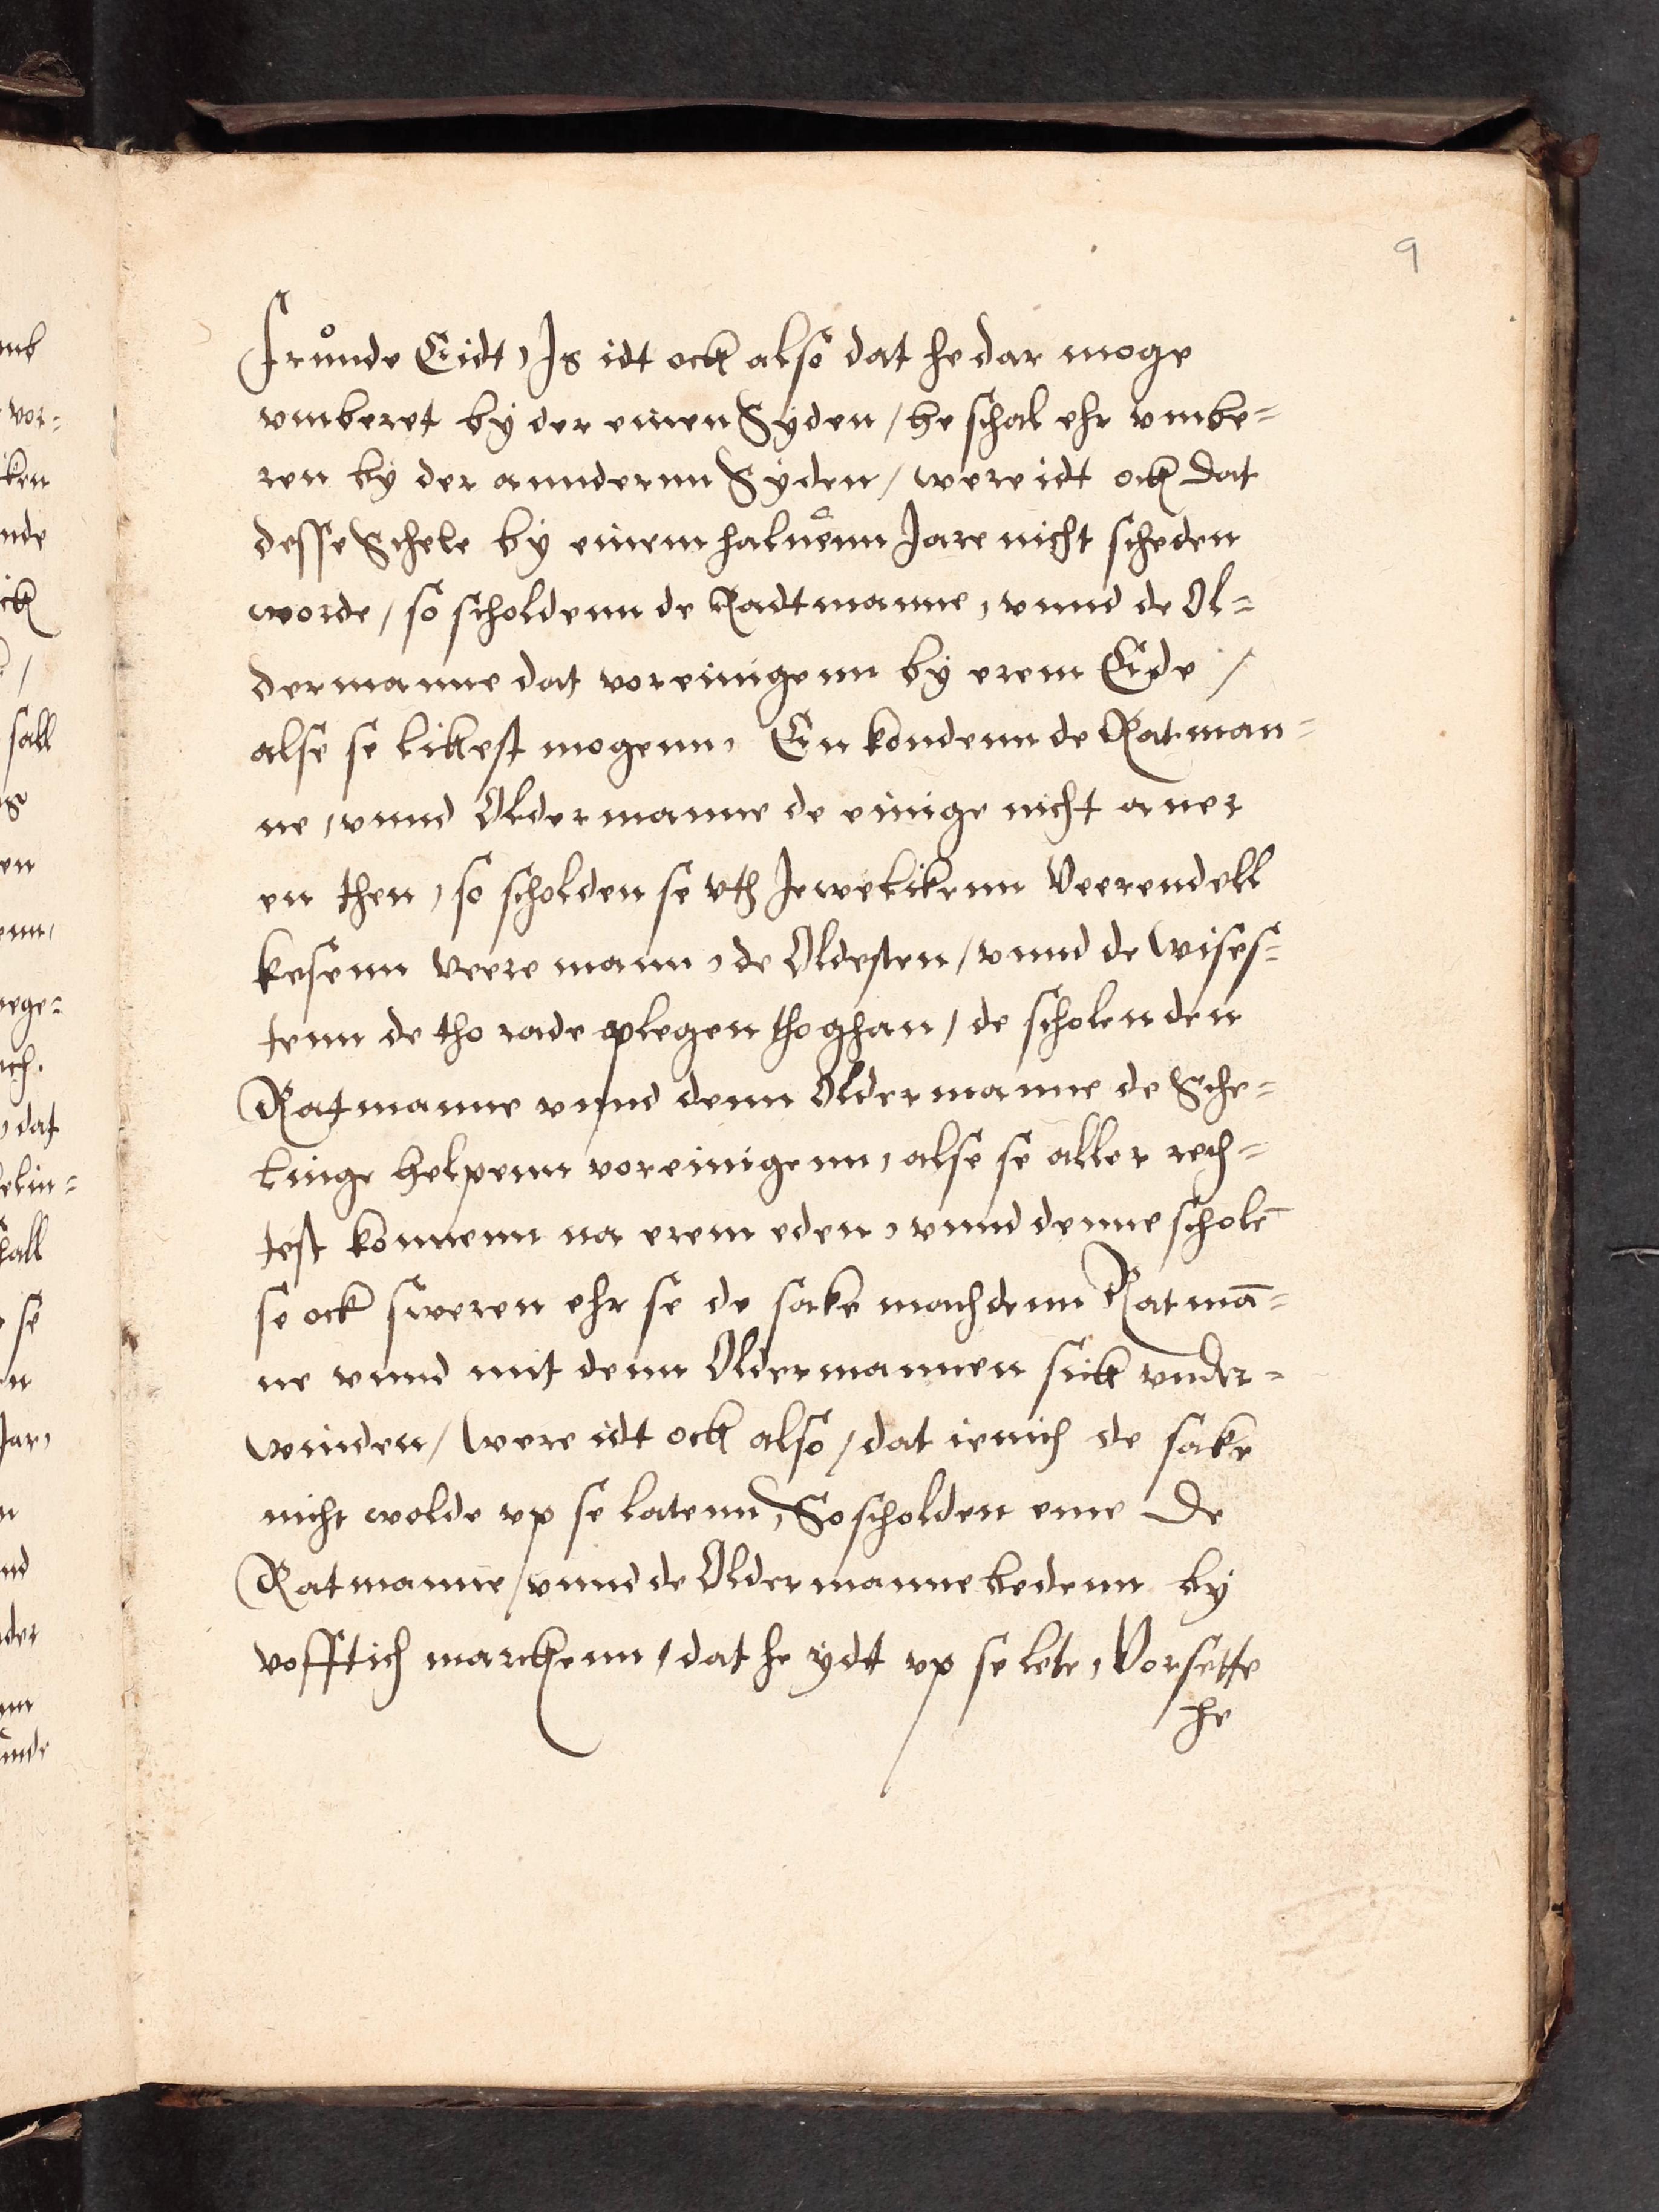 9
Frůnde Eidt, Is idt ock also dat he dar moge
vmberet by der einen Syden / he schal ehr vmbe=
ren by der anndernn Syden / were idt ock dat
desse Schele by einem haluenn Jare nicht scheden
worde / so scholdenn de Radtmanne, vnnd de Ol=
dermanne dat voreinigenn by erem Eide /
alse se likest mogenn, En kondenn de Ratman=
ne, vnnd Oldermanne de einige nicht auer
en then, so scholden se vth Jewelikenn Veerendell
kesenn veere mann, de Oldesten / vnnd de wises=
tenn de tho rade plegen tho ghan / de scholen den
Ratmanne vnnd denn Oldermanne de Sche=
linge helpenn voreinigenn, alse se aller rech=
test konnenn na erem eden, vnnd denne scholē
se ock sweren ehr se de sake mach denn Ratmā=
ne vnnd mit denn Oldermannen sick vnder=
winden / were idt ock also / dat ienich de sake
nicht wolde vp se latenn, So scholden eme de
Ratmanne / vnnd de Oldermanne bedenn by
vofftich marckenn / dat he ydt vp se lete, Vorsette
he